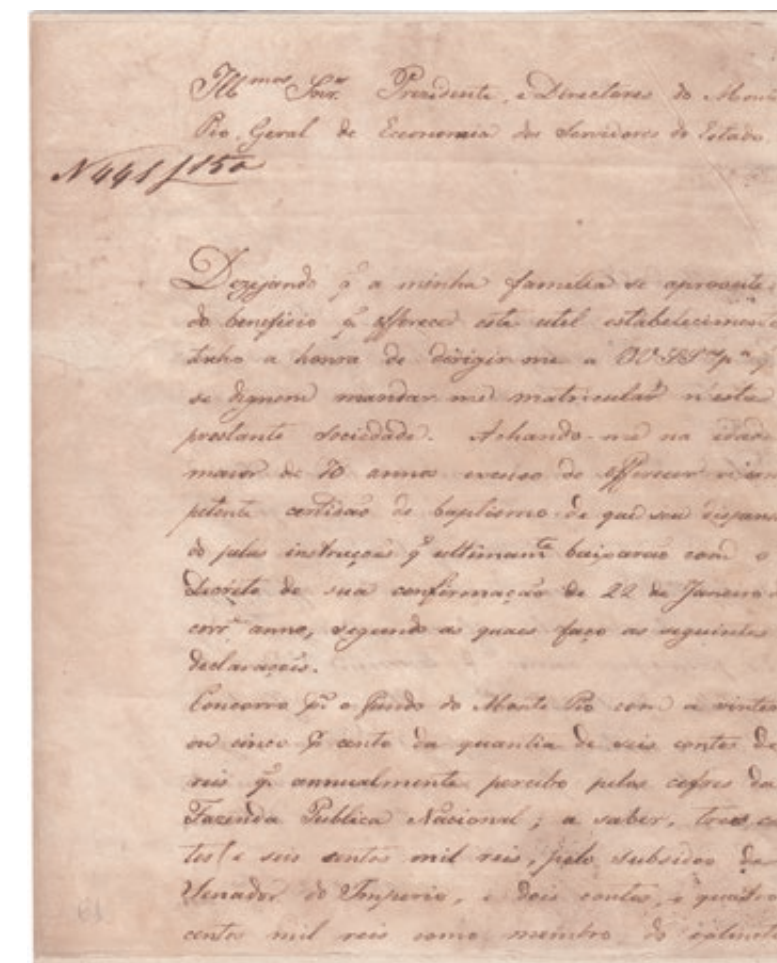 Ill.mos Snr.es Prezidente, e Directores do Monte
Pio Geral de Economia dos Servidores do Estado.
N 441 f 150
Dezejando q̃ a minha familia se aproveite
do beneficio q̃ offerece este util estabelecimento
tenho a honra de dirigir-me a p.a q̃
se dignem mandar-me matricular n'esta
prestante Sociedade. Achando-me na idade
maior de 70 annos excuso de offerecer a com
petente certidão de baptismo de que sou dispensa
do pelas instruções q̃ ultimam.te baixarão com o
Decreto de sua confirmação de 22 de Janeiro
corr.e anno, segundo as quaes faço as seguintes
declarações.
Concorro p.a o fundo do Monte Pio com a vintena
ou cinco p̃ cento da quantia de seis contos de
reis q̃ annualmente percebo pelos cofres da
Fazenda Publica Nacional; a saber, tres con
tos e seis centos mil reis, pelo subsidio de
Senador do Imperio, e dois contos, e quatro
centos mil reis como membro do
61